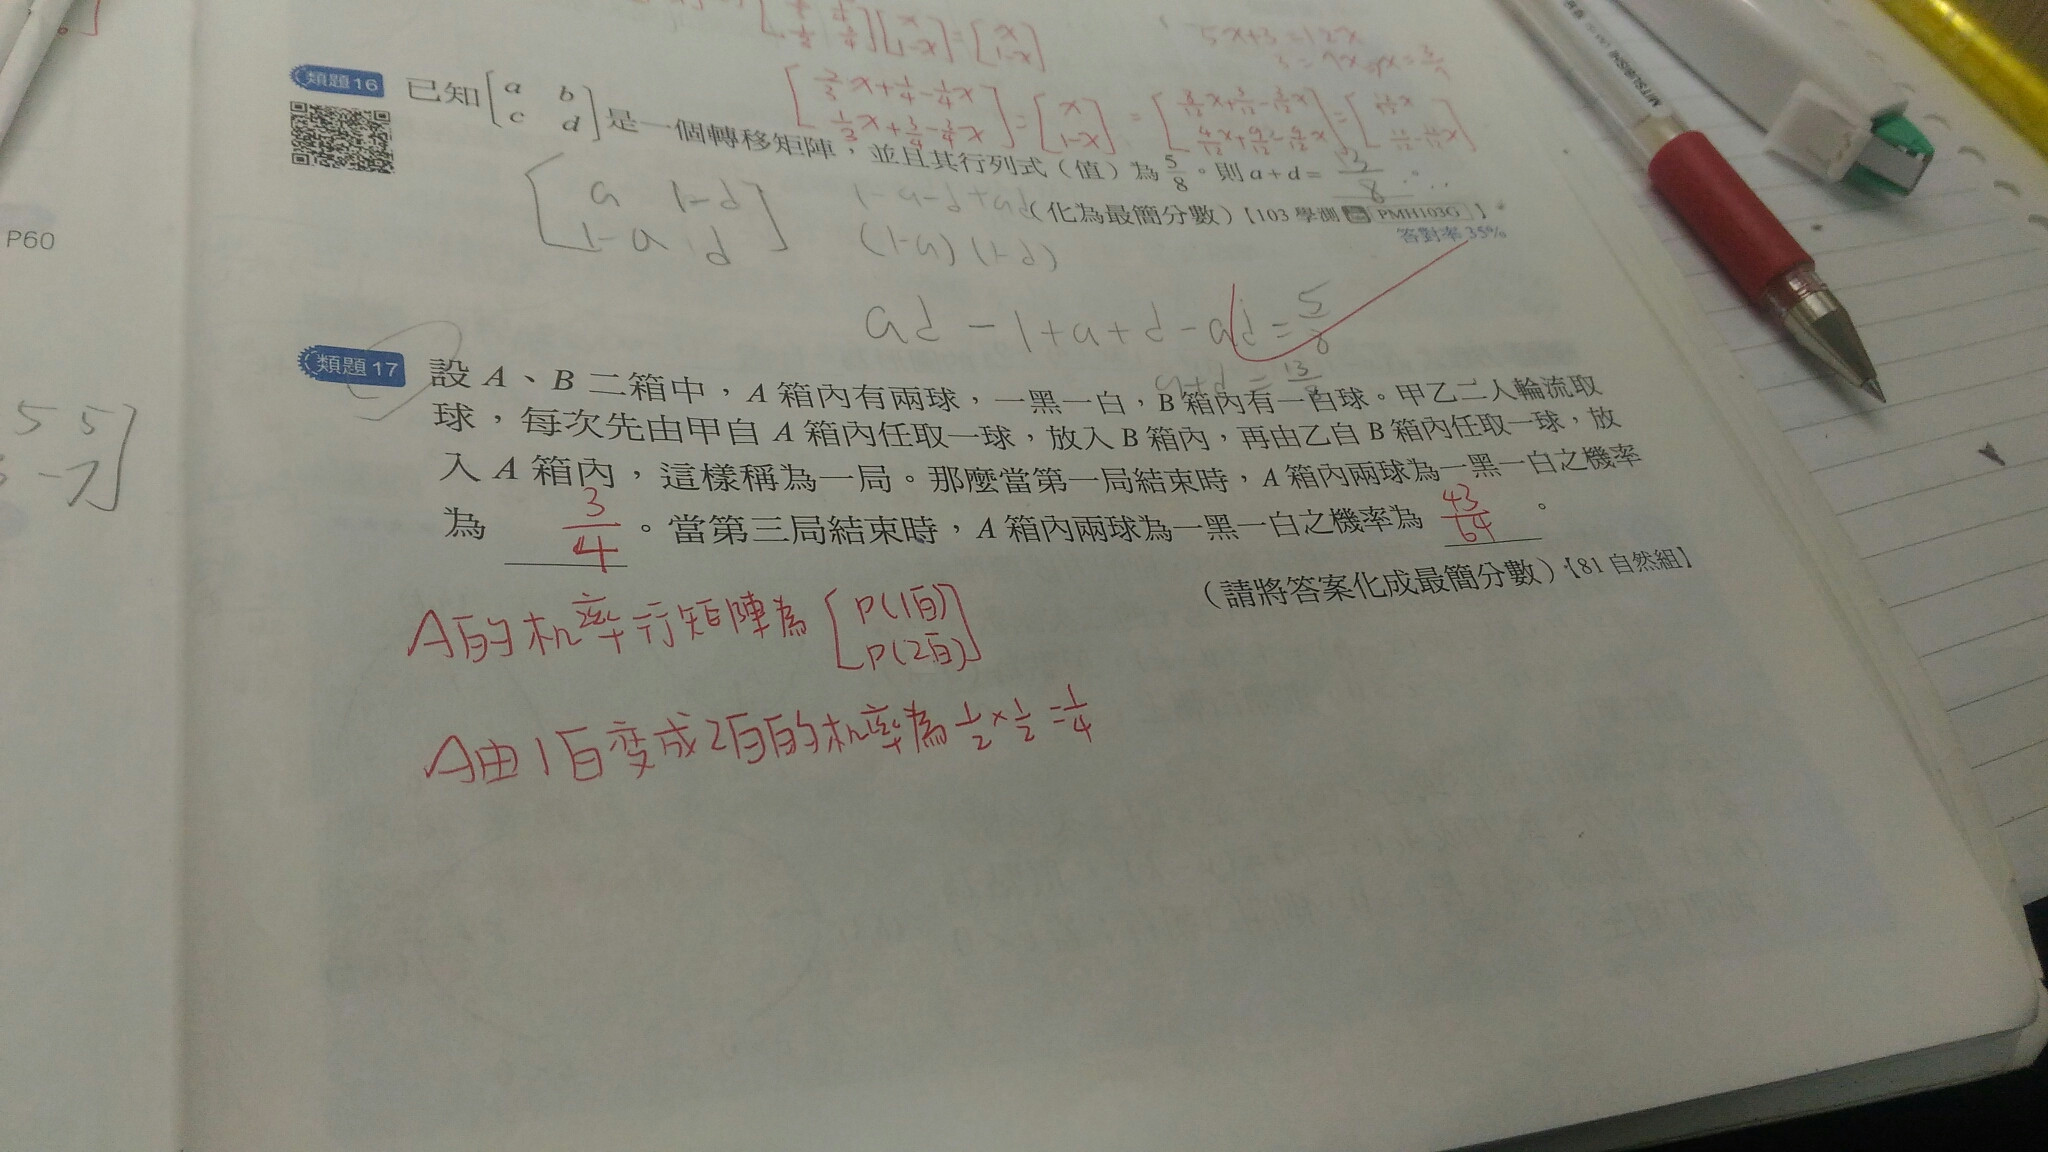 5x+3=12x
類題16 已知[a b
c d]是一個轉移矩陣，並且其行列式（值）為5/8。則a+d= 13/8
（化為最簡分數）【103 學測 PMH103G】
答對率 35%
[2/3x+1/4-1/4x
1/3x+3/4-3/4x]=[x
1-x]
[a 1-d
1-a d]
1-a-d+ad
(1-a)(1-d)
ad-1+a+d-ad=5/8
a+d=13/8
P60
5 5
-7]
類題17 設A、B二箱中，A箱內有兩球，一黑一白，B箱內有一白球。甲乙二人輪流取
球，每次先由甲自A箱內任取一球，放入B箱內，再由乙自B箱內任取一球，放
入A箱內，這樣稱為一局。那麼當第一局結束時，A箱內兩球為一黑一白之機率
為 3/4 。當第三局結束時，A箱內兩球為一黑一白之機率為 43/64 。
（請將答案化成最簡分數）【81 自然組】
A的机率行矩陣為[P(1白)
P(2白)]
A由1白变成2白的机率為1/2×1/2=1/4
MITSUBISHI